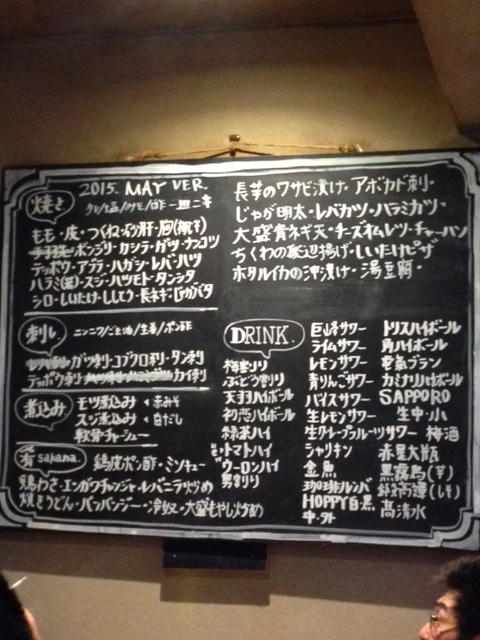 焼き
2015. MAY VER.
タレ/塩/ワサビ/白醤 一皿二本
もも・皮・つくね・ズリ・肝・胸
ボンジリ・カシラ・ガツ・ナンコツ
テッポウ・アブラ・ハガシ・レバ・ハツ
ハラミ・スジ・ハツモト・タンシタ
シロ・しいたけ・ししとう・長ネギ・じゃがバタ
刺し
ニンニク/ごま油/生姜/ポン酢
ガツ刺し・コブクロ刺し・タン刺
テッポウ刺し カイ刺
煮込み
モツ煮込み ・赤みそ
スジ煮込み ・白だし
軟骨チャーシュー
肴 sakana.
鶏皮ポン酢・ミンキュー
鶏わさ・エンガワチャンジャ・レバニラ炒め
焼きうどん・バンバンジー・冷奴・大盛もやし炒め
長芋のワサビ漬け・アボカド刺・
じゃが明太・レバカツ・ハラミカツ・
大盛青ネギ天・チーズオムレツ・チャーハン
ちくわの磯辺揚げ・しいたけピザ
ホタルイカの沖漬け・湯豆腐・
DRINK.
梅割り
ぶどう割り
天羽ハイボール
初恋ハイボール
緑茶ハイ
トマトハイ
ウーロンハイ
男割り
巨峰サワー
ライムサワー
レモンサワー
青りんごサワー
バイスサワー
生レモンサワー
生グレープフルーツサワー
シャリキン
金魚
珈琲ルンバ
HOPPY 白・黒
中・外
トリスハイボール
角ハイボール
電氣ブラン
カミナリハイボール
SAPPORO
生中・小
梅酒
赤星大瓶
黒霧島(芋)
鍛高譚(しそ)
高清水